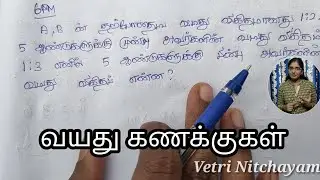 6PM
A, B ன் தற்போதைய வயது விகிதமானது 1:2,
5 ஆண்டுகளுக்கு முன்பு அவர்களின் வயது விகிதம்
1:3 எனில் 5 ஆண்டுகளுக்கு பின்பு அவர்களின்
வயது விகிதம் என்ன?
வயது கணக்குகள்
Vetri Nitchayam